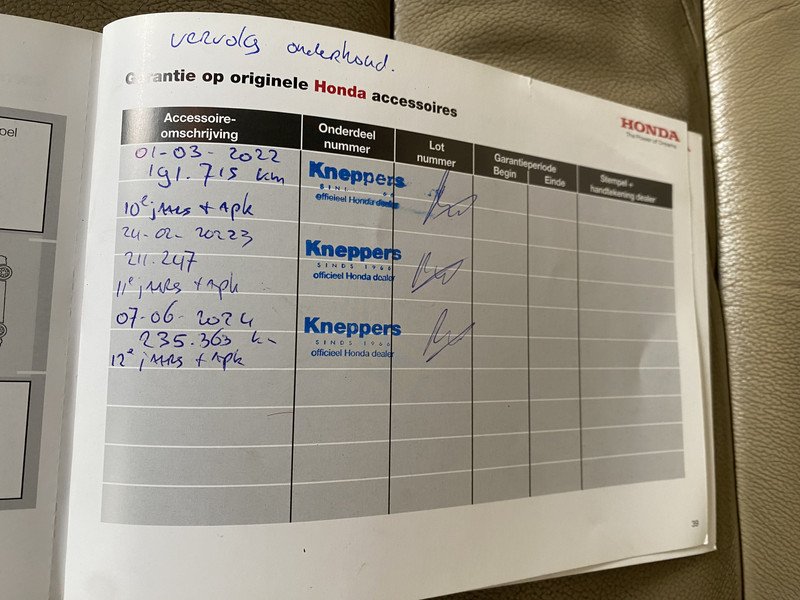 vervolg onderhoud.
Garantie op originele Honda accessoires
HONDA
The Power of Dreams
Accessoire-
omschrijving
Onderdeel
nummer
Lot
nummer
Garantieperiode
Begin
Einde
Stempel +
handtekening dealer
01-03-2022
191.715 km
10e jaars + apk
Kneppers
SINDS 1966
officieel Honda dealer
24-02-20223
211.247
11e jaars + apk
Kneppers
SINDS 1966
officieel Honda dealer
07-06-2024
235.363 k-
12e jaars + apk
Kneppers
SINDS 1966
officieel Honda dealer
39
pel